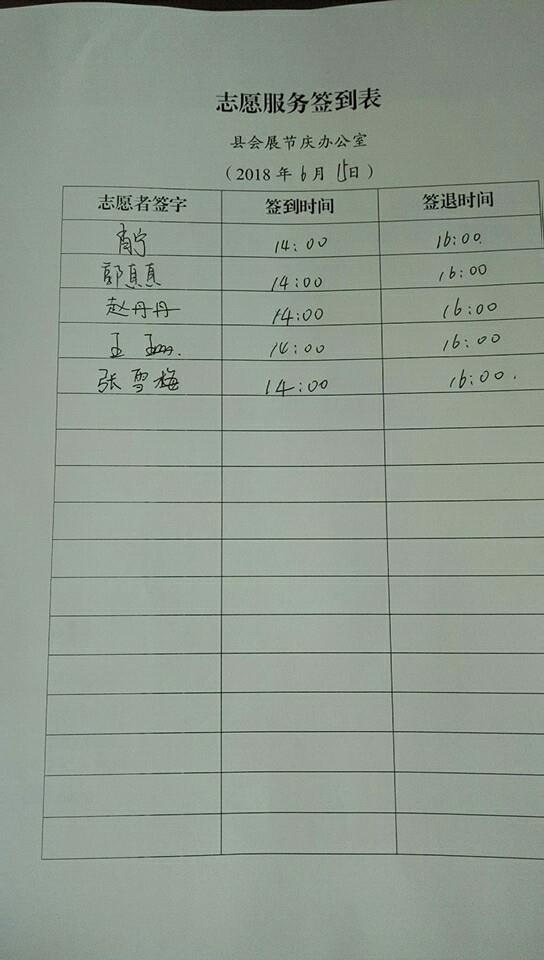 志愿服务签到表
县会展节庆办公室
（2018 年 6 月 15日）
志愿者签字 签到时间 签退时间
肖宁 14:00 16:00.
郭真真 14:00 16:00
赵丹丹 14:00 16:00
王 14:00 16:00
张雪梅 14:00 16:00.